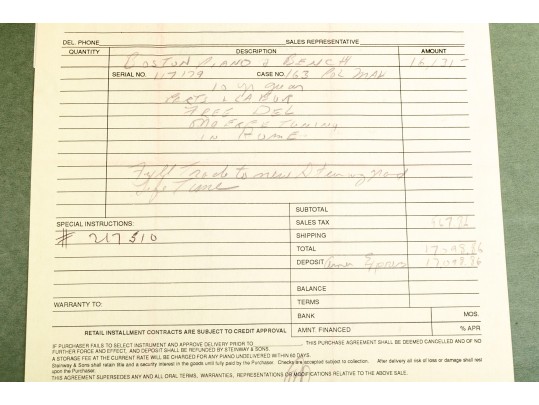 DEL. PHONE SALES REPRESENTATIVE
QUANTITY DESCRIPTION AMOUNT
BOSTON PIANO & BENCH 16,131-
SERIAL NO. 117179 CASE NO. 163 POL MAH
10 yr guar
PARTS & LABOR
FREE DEL
ONE FREE TUNING
IN HOME
Full Trade to new Steinway
Life Time
SUBTOTAL
SPECIAL INSTRUCTIONS: SALES TAX 967.86
# 217510 SHIPPING
TOTAL 17,098.86
DEPOSIT 17,098.86
BALANCE
WARRANTY TO: TERMS
BANK MOS.
RETAIL INSTALLMENT CONTRACTS ARE SUBJECT TO CREDIT APPROVAL AMNT. FINANCED % APR
IF PURCHASER FAILS TO SELECT INSTRUMENT AND APPROVE DELIVERY PRIOR TO , THIS PURCHASE AGREEMENT SHALL BE DEEMED CANCELLED AND OF NO
FURTHER FORCE AND EFFECT, AND DEPOSIT SHALL BE REFUNDED BY STEINWAY & SONS.
A STORAGE FEE AT THE CURRENT RATE WILL BE CHARGED FOR ANY PIANO UNDELIVERED WITHIN 60 DAYS.
Steinway & Sons shall retain title and a security interest in the goods until fully paid by the Purchaser. Checks are accepted subject to collection. After delivery all risk of loss or damage shall rest
upon the Purchaser.
THIS AGREEMENT SUPERSEDES ANY AND ALL ORAL TERMS, WARRANTIES, REPRESENTATIONS OR MODIFICATIONS RELATIVE TO THE ABOVE SALE.